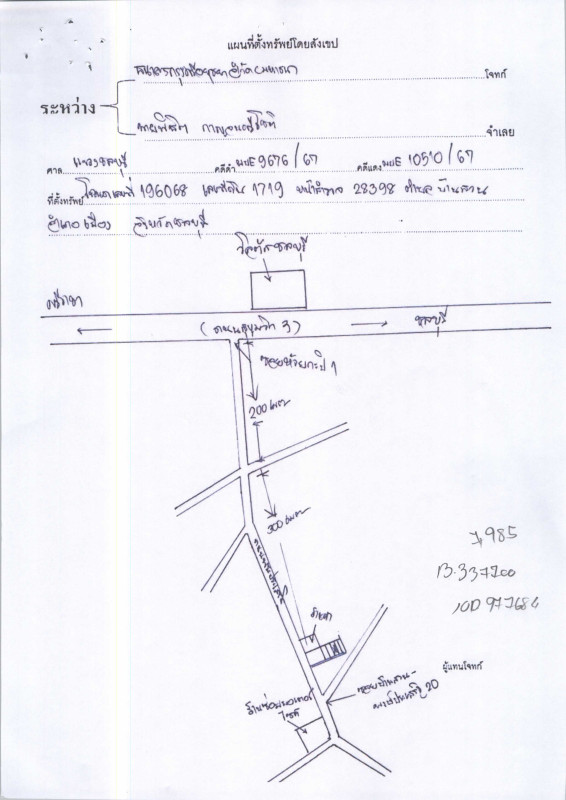 แผนที่ตั้งทรัพย์โดยสังเขป
ธนาคารกรุงศรีอยุธยา จำกัด (มหาชน) โจทก์
ระหว่าง
จำเลย
ศาล แขวงชลบุรี คดีดำ ผบE 9676/67 คดีแดง ผบE 10510/67
ที่ตั้งทรัพย์ โฉนดเลขที่ 196068 เลขที่ดิน 1719 หน้าสำรวจ 28398 ตำบล บ้านสวน
อำเภอเมือง จังหวัดชลบุรี
โลตัสชลบุรี
ศรีราชา
(ถนนสุขุมวิท 3)
ชลบุรี
ซอยห้วยกะปิ 1
200 เมตร
300 เมตร
1,985
13.337200
100.971684
ผู้แทนโจทก์
ซอยบ้านสวน-
20
ร้านซ่อมมอเตอร์
ไซค์